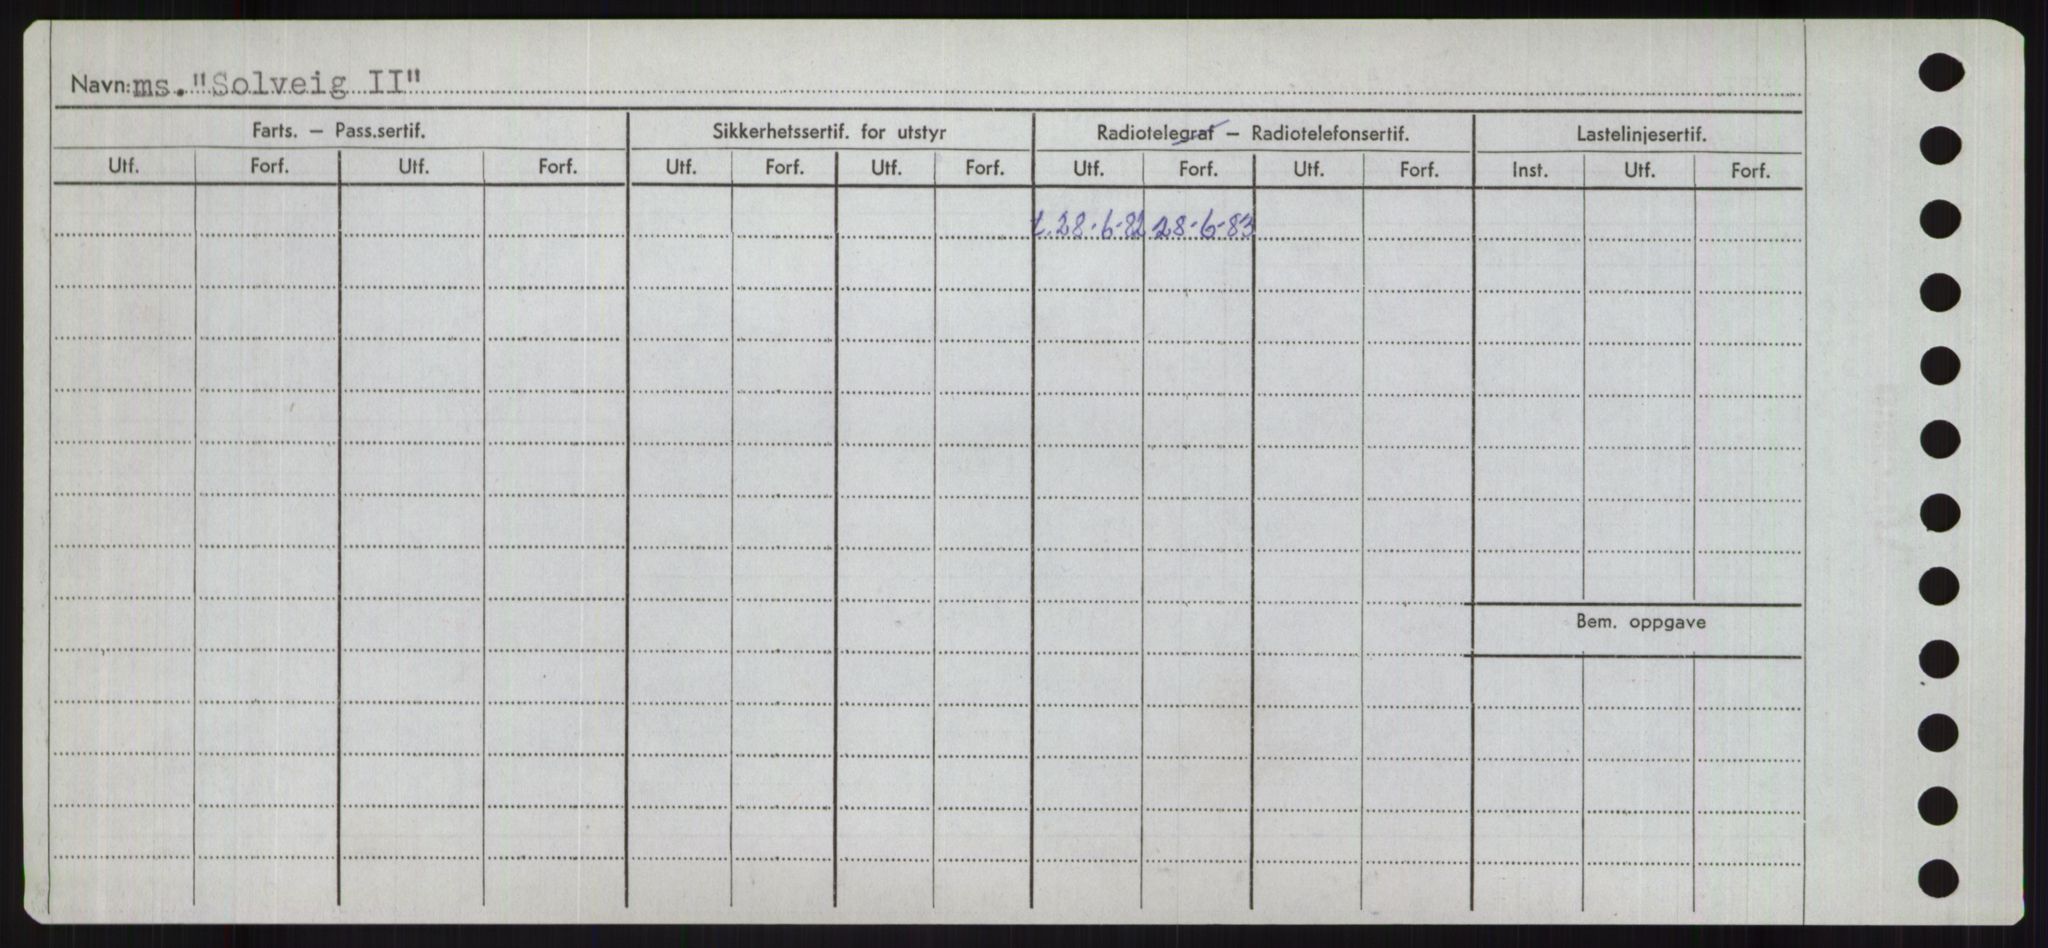 Navn: ms. "Solveig II"
Farts. – Pass.sertif. Sikkerhetssertif. for utstyr Radiotelegraf – Radiotelefonsertif. Lastelinjesertif.
Utf. Forf. Utf. Forf. Utf. Forf. Utf. Forf. Utf. Forf. Utf. Forf. Inst. Utf. Forf.
t. 28-6-82 28-6-83
Bem. oppgave